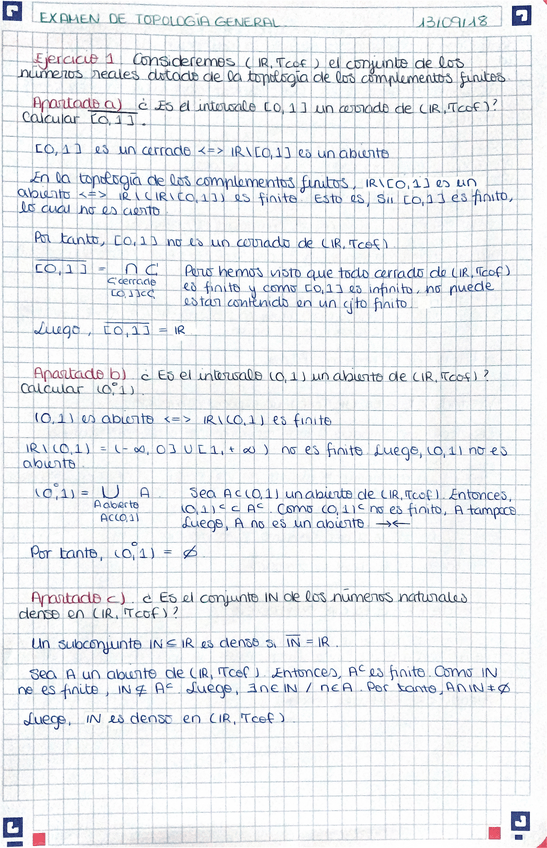 EXAMEN DE TOPOLOGÍA GENERAL 13/09/18
Ejercicio 1 Consideremos (IR, Tcof) el conjunto de los
números reales dotado de la topología de los complementos finitos
Apartado a) ¿ Es el intervalo [0,1] un cerrado de (IR, Tcof)?
Calcular [0,1].
[0,1] es un cerrado <=> IR\[0,1] es un abierto
En la topología de los complementos finitos, IR\[0,1] es un
abierto <=> IR\(IR\[0,1]) es finito. Esto es, sii [0,1] es finito,
lo cual no es cierto.
Por tanto, [0,1] no es un cerrado de (IR, Tcof)
[0,1] = ∩ C Pero hemos visto que todo cerrado de (IR, Tcof)
C cerrado es finito y como [0,1] es infinito, no puede
[0,1]⊂C estar contenido en un cjto finito
Luego, [0,1] = IR
Apartado b) ¿ Es el intervalo (0,1) un abierto de (IR, Tcof)?
Calcular (0,1)°.
(0,1) es abierto <=> IR\(0,1) es finito
IR\(0,1) = (-∞, 0] ∪ [1, +∞) no es finito. Luego, (0,1) no es
abierto.
(0,1)° = ∪ A Sea A⊂(0,1) un abierto de (IR, Tcof). Entonces,
A abierto (0,1)ᶜ ⊂ Aᶜ. Como (0,1)ᶜ no es finito, A tampoco
A⊂(0,1) Luego, A no es un abierto →←
Por tanto, (0,1)° = ∅
Apartado c) ¿ Es el conjunto IN de los números naturales
denso en (IR, Tcof)?
Un subconjunto IN ⊆ IR es denso si IN = IR.
Sea A un abierto de (IR, Tcof). Entonces, Aᶜ es finito. Como IN
no es finito, IN ⊄ Aᶜ. Luego, ∃n∈IN / n∈A. Por tanto, A∩IN ≠ ∅
Luego, IN es denso en (IR, Tcof)